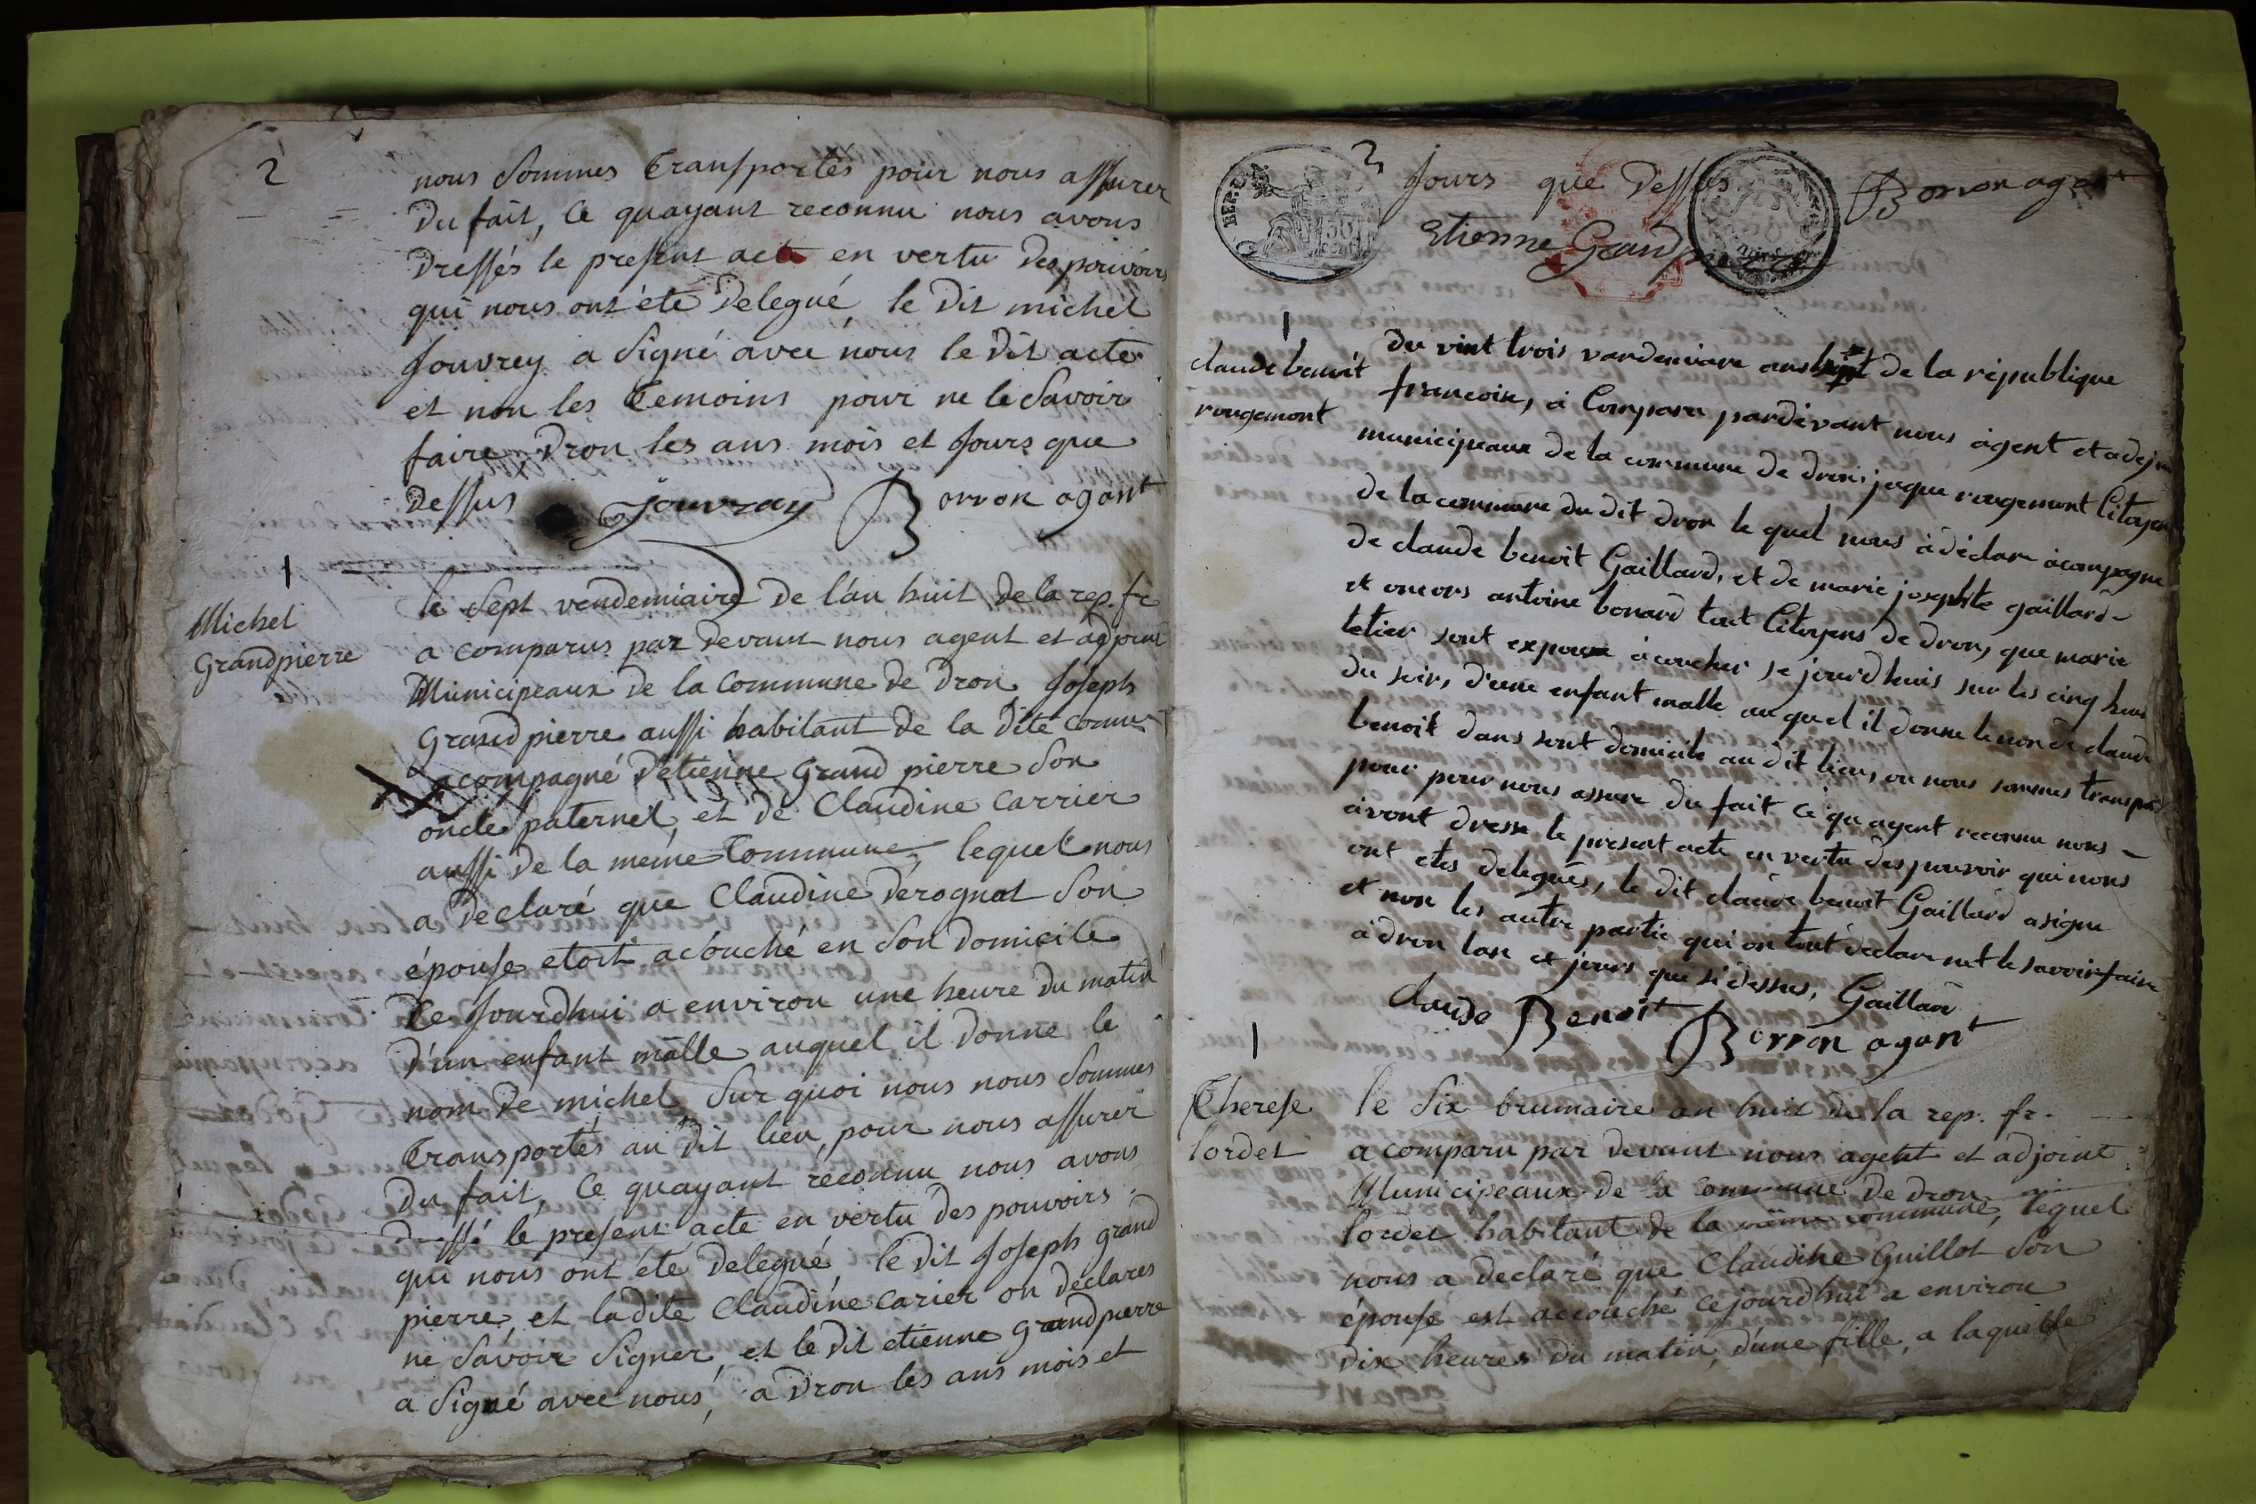 2
nous Sommes Transportés pour nous assurer
Du fait, Ce quayant reconnu nous avons
Dressés le present acte en vertu Des pouvoirs
qui nous ont été Delegué, le Dit michel
Jouvrey a Signé avec nous le Dit acte
et non les Temoins pour ne le Savoir
faire, Dron les ans mois et Jours que
Dessus Jouvray Borron agant
1
Michel
Grandpierre
le Sept vendemiaire De l'an huit De la rep. fr
a comparus par Devant nous agent et adjoint
Municipeaux de la Commune de Dron Joseph
Grand pierre aussi habitant De la Dite Comm
acompagné D'etienne Grand pierre Son
oncle paternel, et De Claudine Carrier
aussi De la même Commune, lequel nous
a Declaré que Claudine Dérognat Son
épouse etoit acouché en Son Domicile
Ce Jourdhui a environ une heure Du matin
D'un enfant mâlle auquel il Donne le
nom De michel Sur quoi nous nous Sommes
Transportés au Dit lieu, pour nous assurer
Du fait, Ce quayant reconnu nous avons
Dressé le present acte en vertu Des pouvoirs
qui nous ont éte Delegué le Dit Joseph grand
pierre et ladite Claudine Carier on Déclares
ne Savoir Signer et le Dit etienne grandpierre
a Signé avec nous, a Dron les ans mois et
REP.
Jours que Dessus Borron agent
Etienne Grandpierre
1
claude benoit
rougemont
du vint trois vandemiare ans huit de la république
francoise, à Comparu pardevant nous àgent et adej
municipeaux de la commune de dron, jaque rougemont Citoyen
de la commune du dit dron le quel nous à déclare acompagne
de claude benoit Gaillard, et de marie josephte gaillard
et oncors antoine bonard tout Citoyens de dron, que marie
letier sont expouse àcoucher se jourdhuis sur les cinq heur
du soir, d'une enfant malle auquel il donne le non de claude
benoit dans sont domicile au dit lieu, ou nous sommes transpor
pour pour nous assure du fait ce quagent reconnu nous
àvont dresse le present acte en vertu des pouvoir qui nous
ont etes delegués, le dit claude benoit Gaillard asigne
et non les autre partie qui on tout declare net le savoir faire
à dron lan et jours que si dessus, Gaillard
Claude Benoit Borron agant
1
Therese
lordet
le Six brumaire an huit de la rep. fr.
a comparu par devant nous agent et adjoint
Municipeaux de la Commune De Dron
lordet habitant de la même commune, lequel
nous a Declaré que Claudine Guillot Son
épouse est accouché cejourdhui a environ
Dix heures du matin, d'une fille, a laquelle